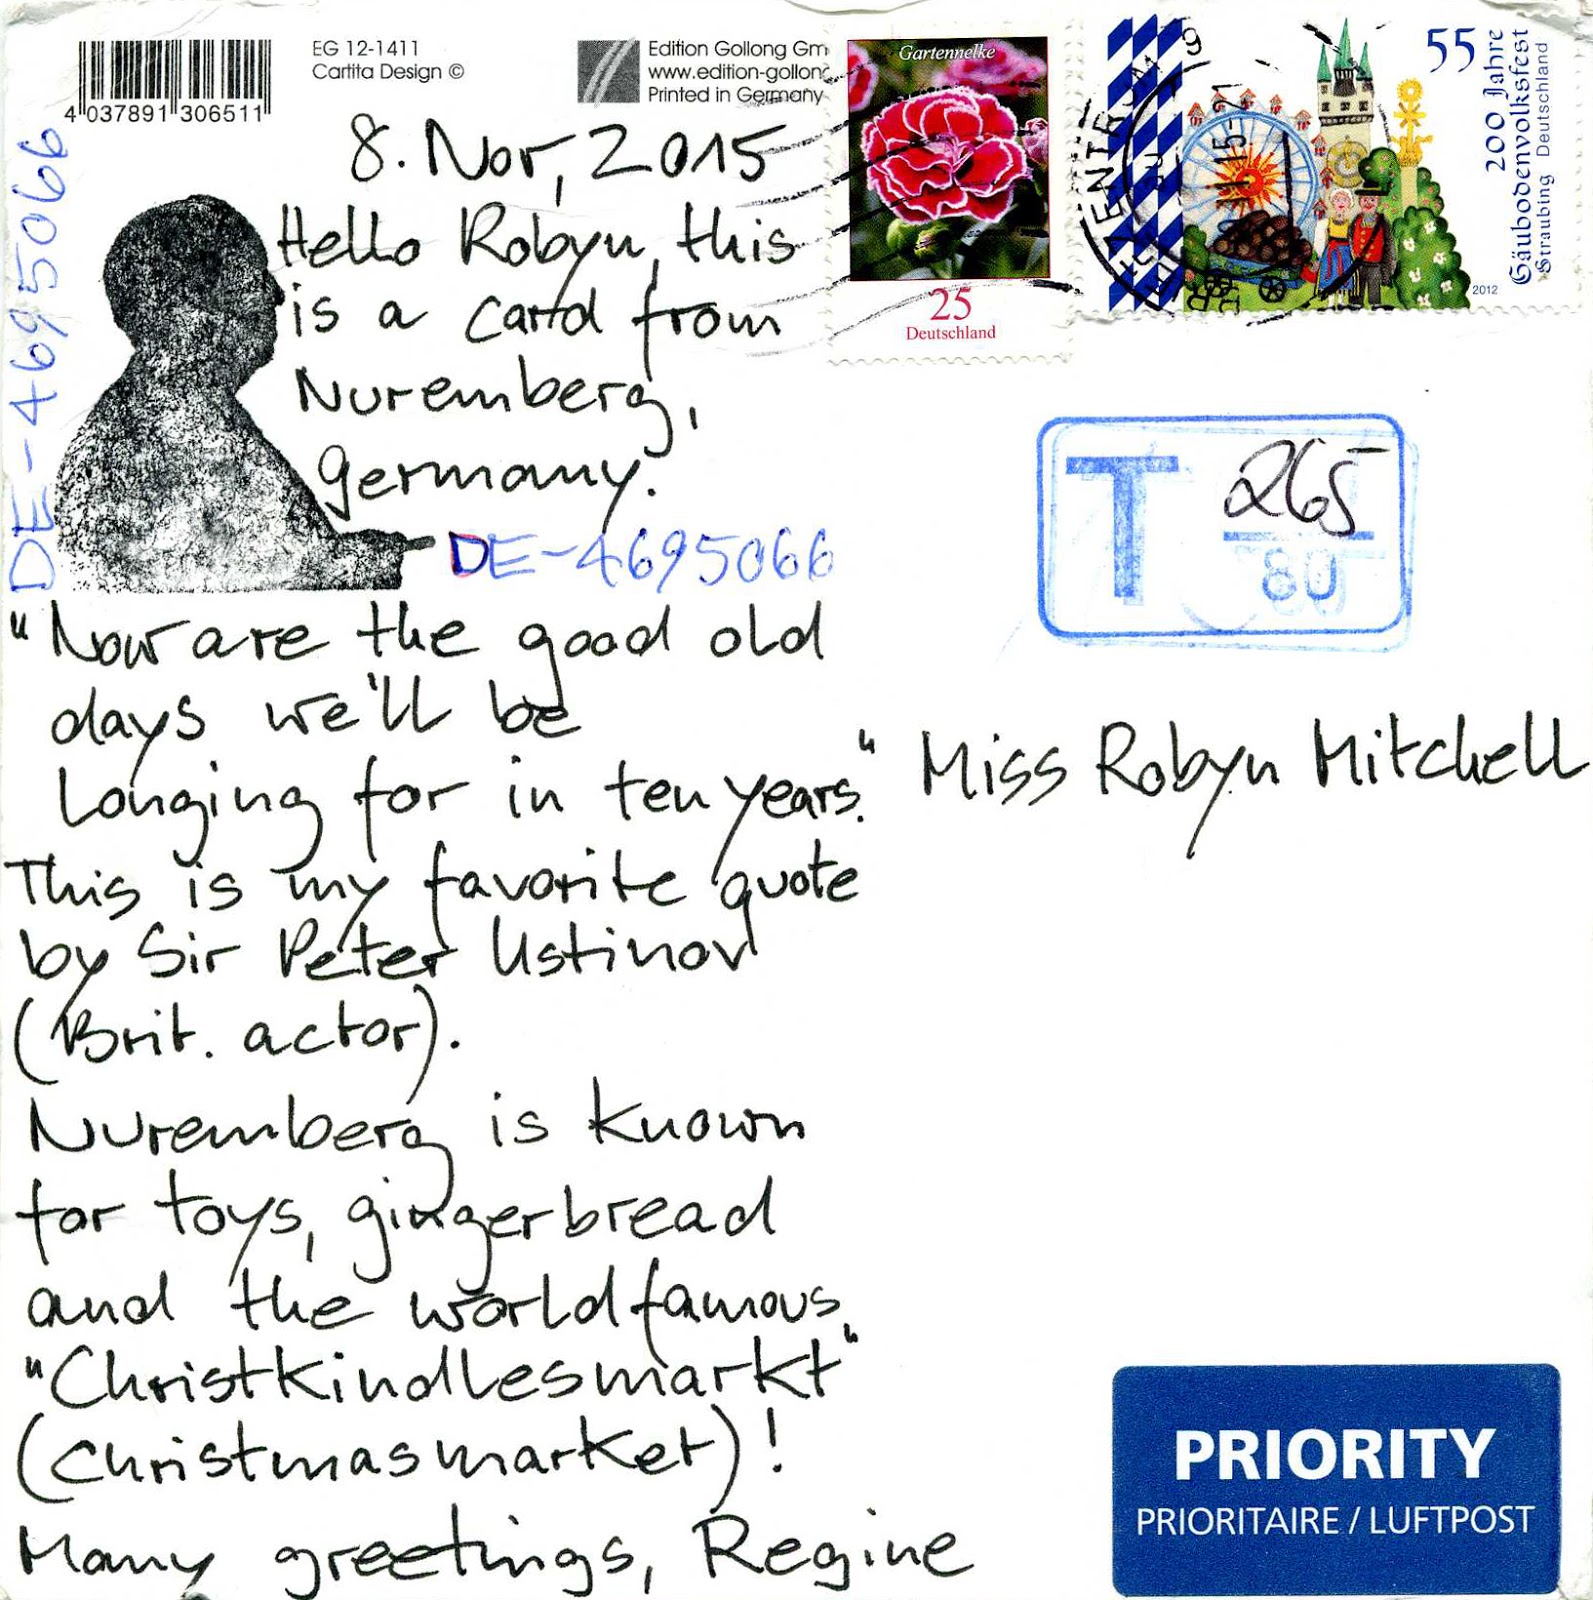 EG 12-1411
Cartita Design ©
4 037891 306511
Edition Gollong Gm
www.edition-gollon
Printed in Germany
Gartennelke
25
Deutschland
55
200 Jahre
Gäubodenvolksfest
Straubing Deutschland
2012
8. Nov, 2015
Hello Robyn, this
is a card from
Nuremberg,
Germany.
DE-4695066
DE-4695066
"Now are the good old
days we'll be
longing for in ten years."
This is my favorite quote
by Sir Peter Ustinov
(Brit. actor).
Nuremberg is known
for toys, gingerbread
and the worldfamous
"Christkindlesmarkt"
(Christmasmarket)!
Many greetings, Regine
T 265
80
Miss Robyn Mitchell
PRIORITY
PRIORITAIRE / LUFTPOST